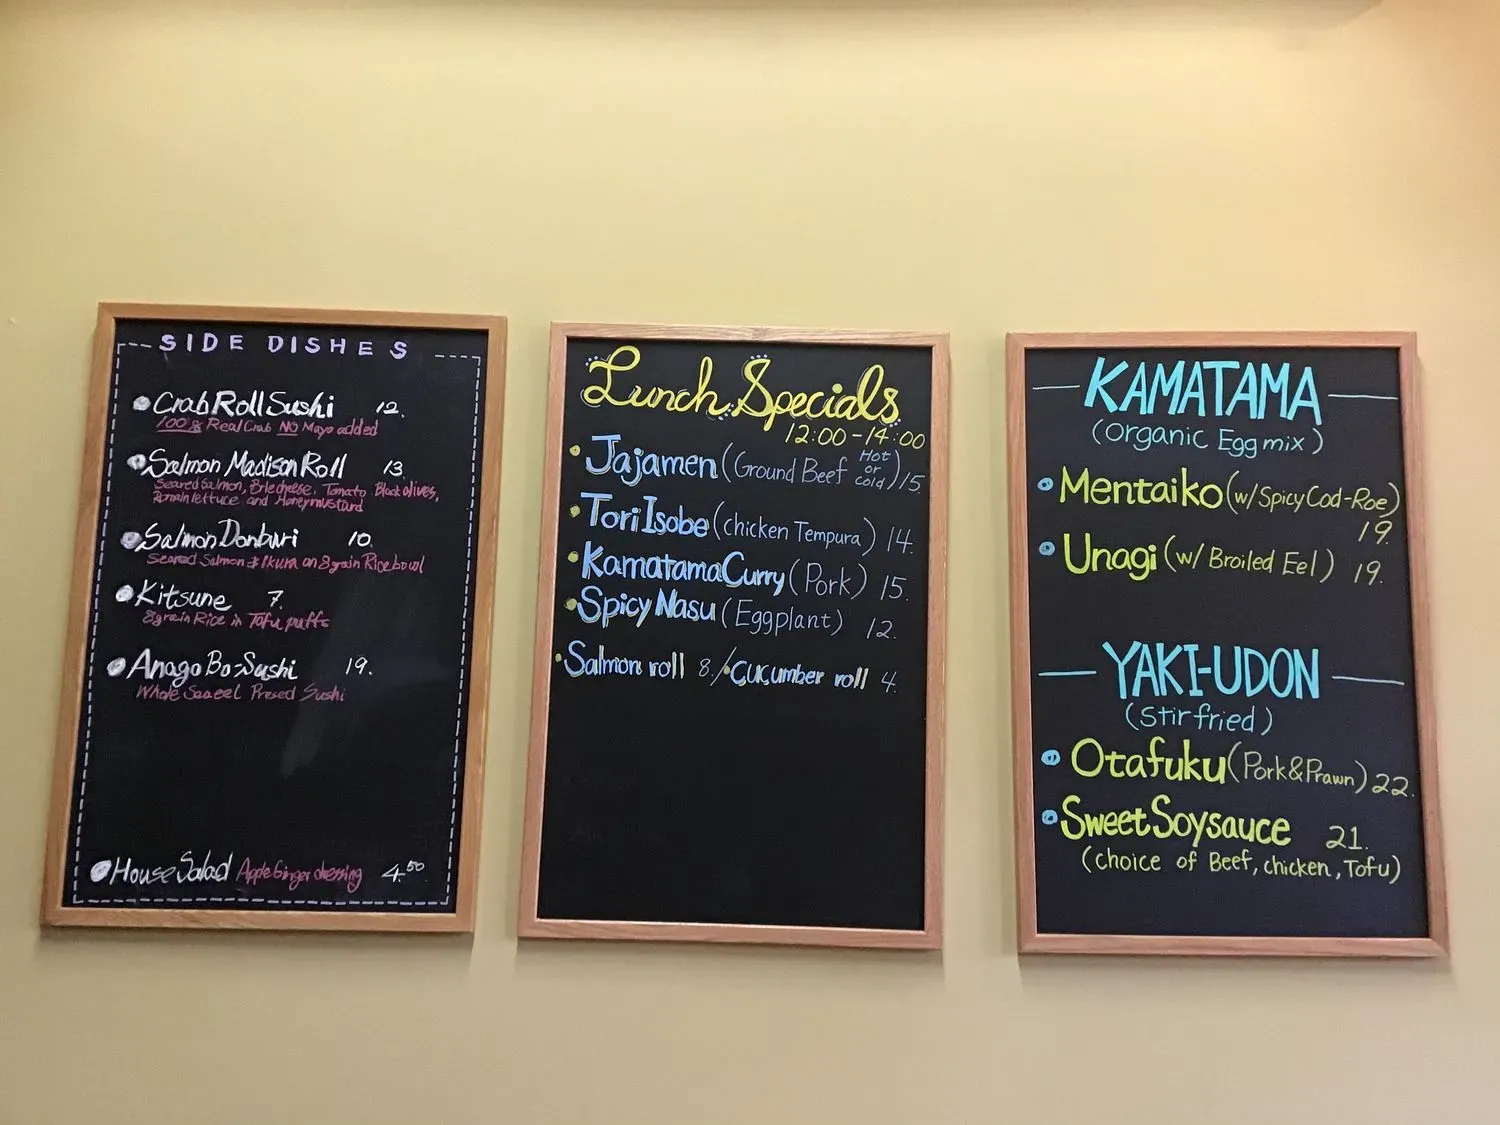 SIDE DISHES
Crab Roll Sushi 12.
100% Real Crab NO Mayo added
Salmon Madison Roll 13.
Seared Salmon, Brie cheese, Tomato Black olives,
Romain lettuce and Honey mustard
Salmon Donburi 10.
Seared Salmon & Ikura on 8 grain Rice bowl
Kitsune 7.
8 grain Rice in Tofu puffs
Anago Bo-Sushi 19.
Whole Sea eel Presed Sushi
House Salad Apple Ginger dressing 4.50
Lunch Specials
12:00-14:00
Jajamen (Ground Beef Hot or cold) 15.
Tori Isobe (chicken Tempura) 14.
Kamatama Curry (Pork) 15.
Spicy Nasu (Eggplant) 12.
Salmon roll 8./Cucumber roll 4.
KAMATAMA
(Organic Egg mix)
Mentaiko (w/ Spicy Cod-Roe)
19.
Unagi (w/ Broiled Eel) 19.
YAKI-UDON
(Stir fried)
Otafuku (Pork & Prawn) 22.
Sweet Soysauce 21.
(choice of Beef, chicken, Tofu)